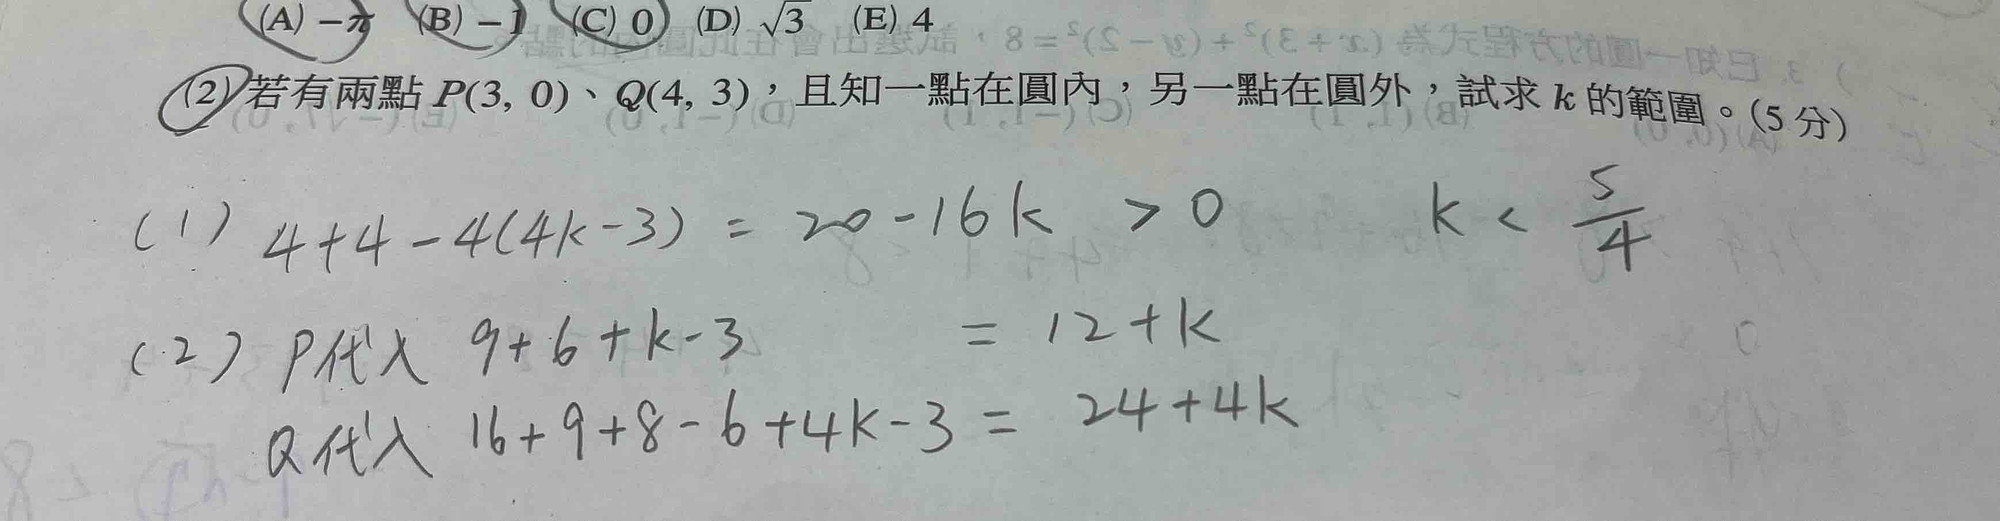 (A) −π (B) −1 (C) 0 (D) √3 (E) 4
(2)若有兩點 P(3, 0)、Q(4, 3),且知一點在圓內,另一點在圓外,試求 k 的範圍。(5 分)
(1) 4+4-4(4k-3) = 20-16k > 0 k < 5/4
(2) P代入 9+6+k-3 = 12+k
Q代入 16+9+8-6+4k-3 = 24+4k